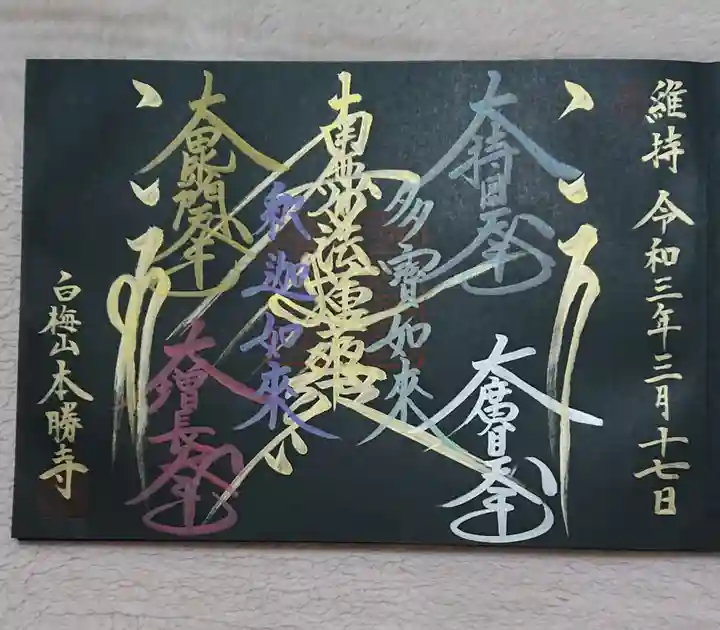 維持 令和三年三月十七日
大持国天王
大廣目天王
多寶如来
南無妙法蓮華経
釈迦如来
大毘沙門天王
大増長天王
白梅山本勝寺